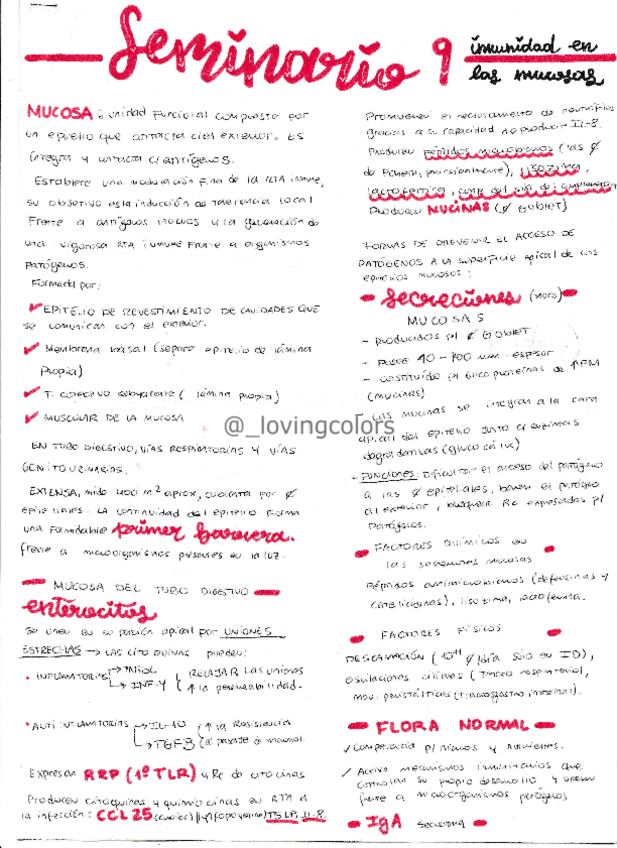 Seminario 9 inmunidad en
las mucosas
MUCOSA: unidad funcional compuesta por
un epitelio que contacta c/el exterior. Es
íntegra y contacta c/antígenos.
Establece una modulación fina de la RTA inmune,
su objetivo es la inducción de tolerancia local
frente a antígenos inocuos y la generación de
una vigorosa RTA inmune frente a organismos
patógenos.
Formada por:
✓ EPITELIO DE REVESTIMIENTO DE CAVIDADES QUE
se comunican con el exterior.
✓ Membrana basal (separa epitelio de lámina
propia)
✓ T. conectivo subyacente (lámina propia)
✓ MUSCULAR DE LA MUCOSA
EN TUBO DIGESTIVO, VÍAS RESPIRATORIAS Y VÍAS
GENITOURINARIAS.
EXTENSA, mide 400 m² aprox, cubierta por ₡
epiteliales. La continuidad del epitelio forma
una formidable primer barrera.
frente a microorganismos presentes en la luz.
MUCOSA DEL TUBO DIGESTIVO
enterocitos
Se unen en su porción apical por UNIONES
ESTRECHAS → LAS citoquinas pueden:
• INFLAMATORIAS → TNFα → INF-γ RELAJAR las uniones ↑ la permeabilidad.
• ANTIINFLAMATORIAS → IL-10 → TGFβ ↑ la Resistencia
Expresan RRP (1º TLR) y Rc de citocinas
Producen citoquinas y quimiocinas en RTA a
la infección: CCL25 TSLP, IL-8.
Promueven el reclutamiento de neutrófilos
gracias a su capacidad de producir IL-8.
Producen péptidos microbianos (las ₡
de Paneth, principalmente), lisozima,
lactoferrina, comp. del sist. de complemento
Producen MUCINAS (₡ Goblet)
FORMAS DE PREVENIR EL ACCESO DE
PATÓGENOS A LA superficie apical de los
epitelios mucosos:
Secreciones (moco)
MUCOSAS
- producidos p/ ₡ Goblet
- posee espesor
- constituido p/ glicoproteínas de ↑PM
(mucinas)
Las mucinas se integran a la cara
apical del epitelio junto c/ enzimas
degradativas (glucocálix)
- FUNCIONES: Dificultar el acceso del patógeno
a las ₡ epiteliales, barren el patógeno
al exterior, bloquear Rc expresados p/
patógenos.
• FACTORES químicos en
las secreciones mucosas
Péptidos antimicrobianos (defensinas y
catelicidinas), lisozima, lactoferrina.
• FACTORES FÍSICOS
DESCAMACIÓN (10¹¹ ₡/día sólo en ID),
oscilaciones ciliares (tracto respiratorio),
mov. peristálticos (tracto gastrointestinal).
FLORA NORMAL
✓ Competencia p/ nichos y nutrientes.
✓ Activa mecanismos inmunitarios que
controlan su propio desarrollo y
frente a microorganismos patógenos
IgA secretoria
@_lovingcolors